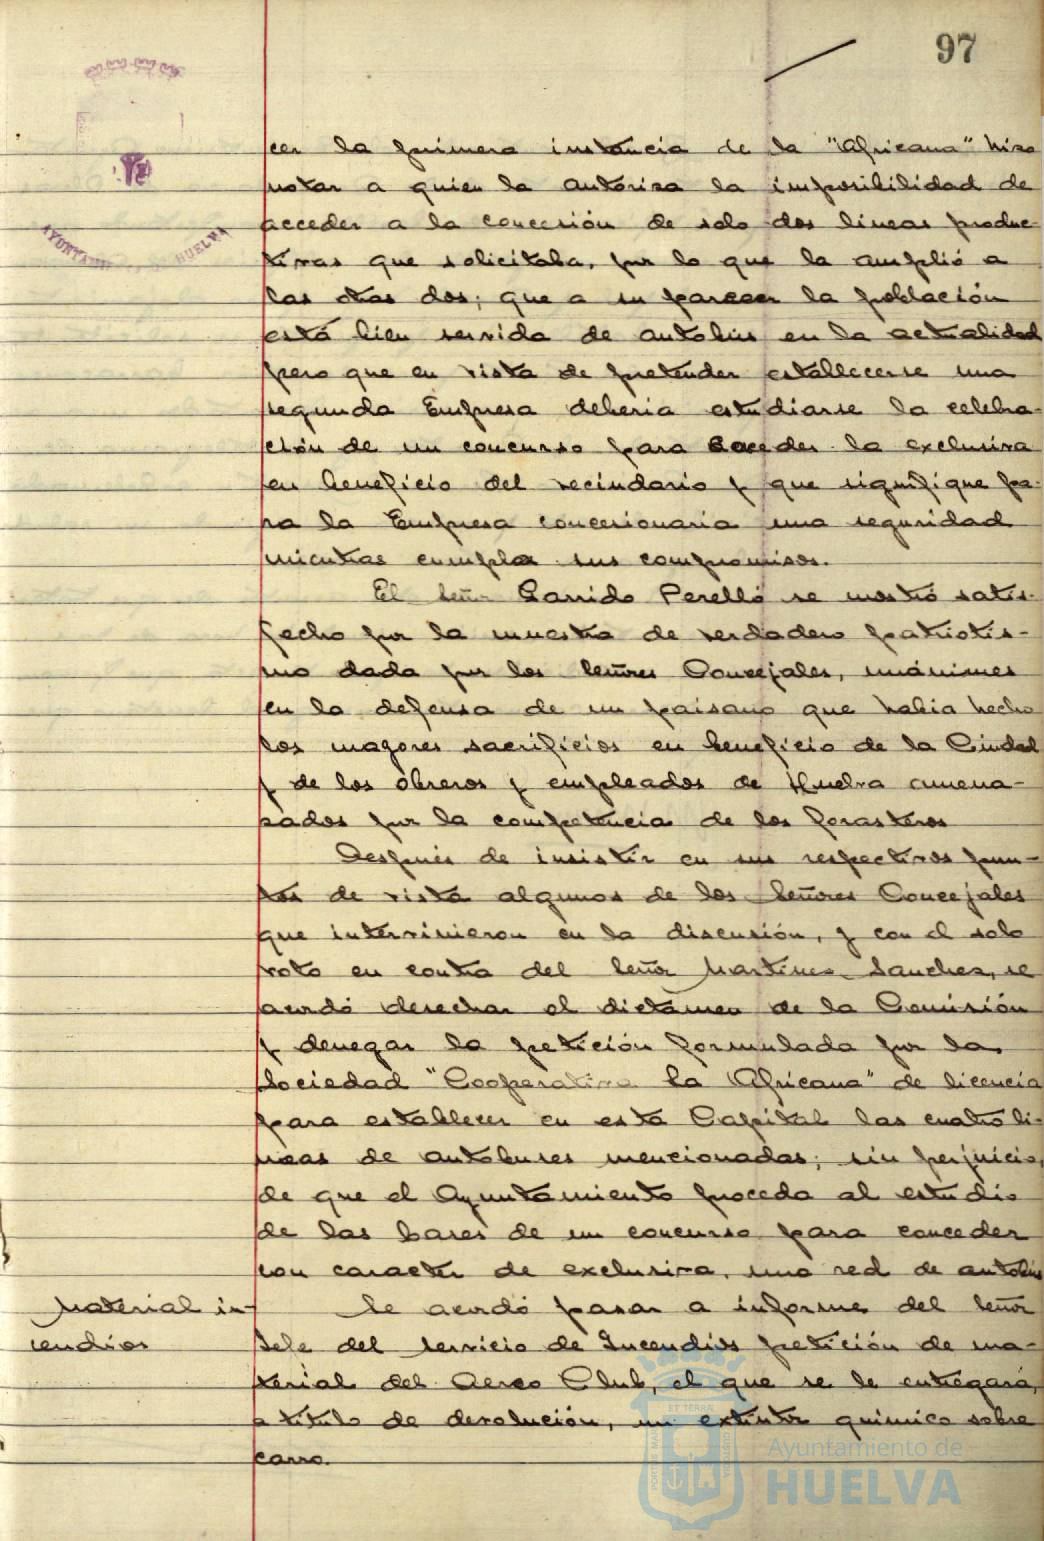 97
cer la primera instancia de la "Africana" hizo
notar a quien la autoriza la imposibilidad de
acceder a la concesión de solo dos lineas produc-
tivas que solicitaba, por lo que la amplió a
las otras dos; que a su parecer la población
está bien servida de autobus en la actualidad
pero que en vista de pretender establecerse una
segunda Empresa deberia estudiarse la celebra-
ción de un concurso para acceder la exclusiva
en beneficio del vecindario y que signifique pa-
ra la Empresa concesionaria una seguridad
mientras cumpla sus compromisos.
El Señor Garrido Perelló se mostró satis-
fecho por la muestra de verdadero patriotis-
mo dada por los Señores Concejales, unánimes
en la defensa de un paisano que habia hecho
los mayores sacrificios en beneficio de la Ciudad
y de los obreros y empleados de Huelva amena-
zados por la competencia de los forasteros
Después de insistir en sus respectivos pun-
tos de vista algunos de los Señores Concejales
que intervinieron en la discusión, y con el solo
voto en contra del Señor Martinez Sanchez, se
acordó desechar el dictámen de la Comisión
y denegar la petición formulada por la
Sociedad "Cooperativa la Africana" de licencia
para establecer en esta Capital las cuatro li-
neas de autobuses mencionadas; sin perjuicio
de que el Ayuntamiento proceda al estudio
de las bases de un concurso para conceder
con caracter de exclusiva, una red de autobus
Material in-
cendios
Se acordó pasar a informe del Señor
Jefe del servicio de Incendios petición de ma-
terial del Aereo Club, el que se le entregará,
a titulo de devolución, un extintor quimico sobre
carro.
AYUNTAMIENTO DE HUELVA
Ayuntamiento de
HUELVA